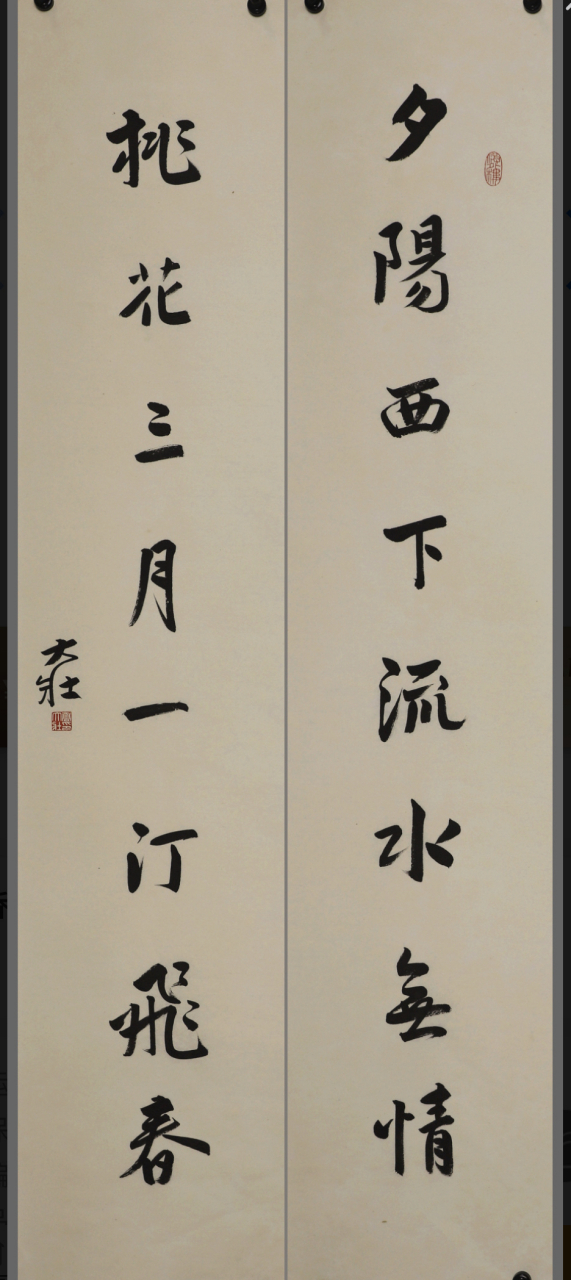 夕陽西下流水無情
桃花三月一汀飛春
大壯